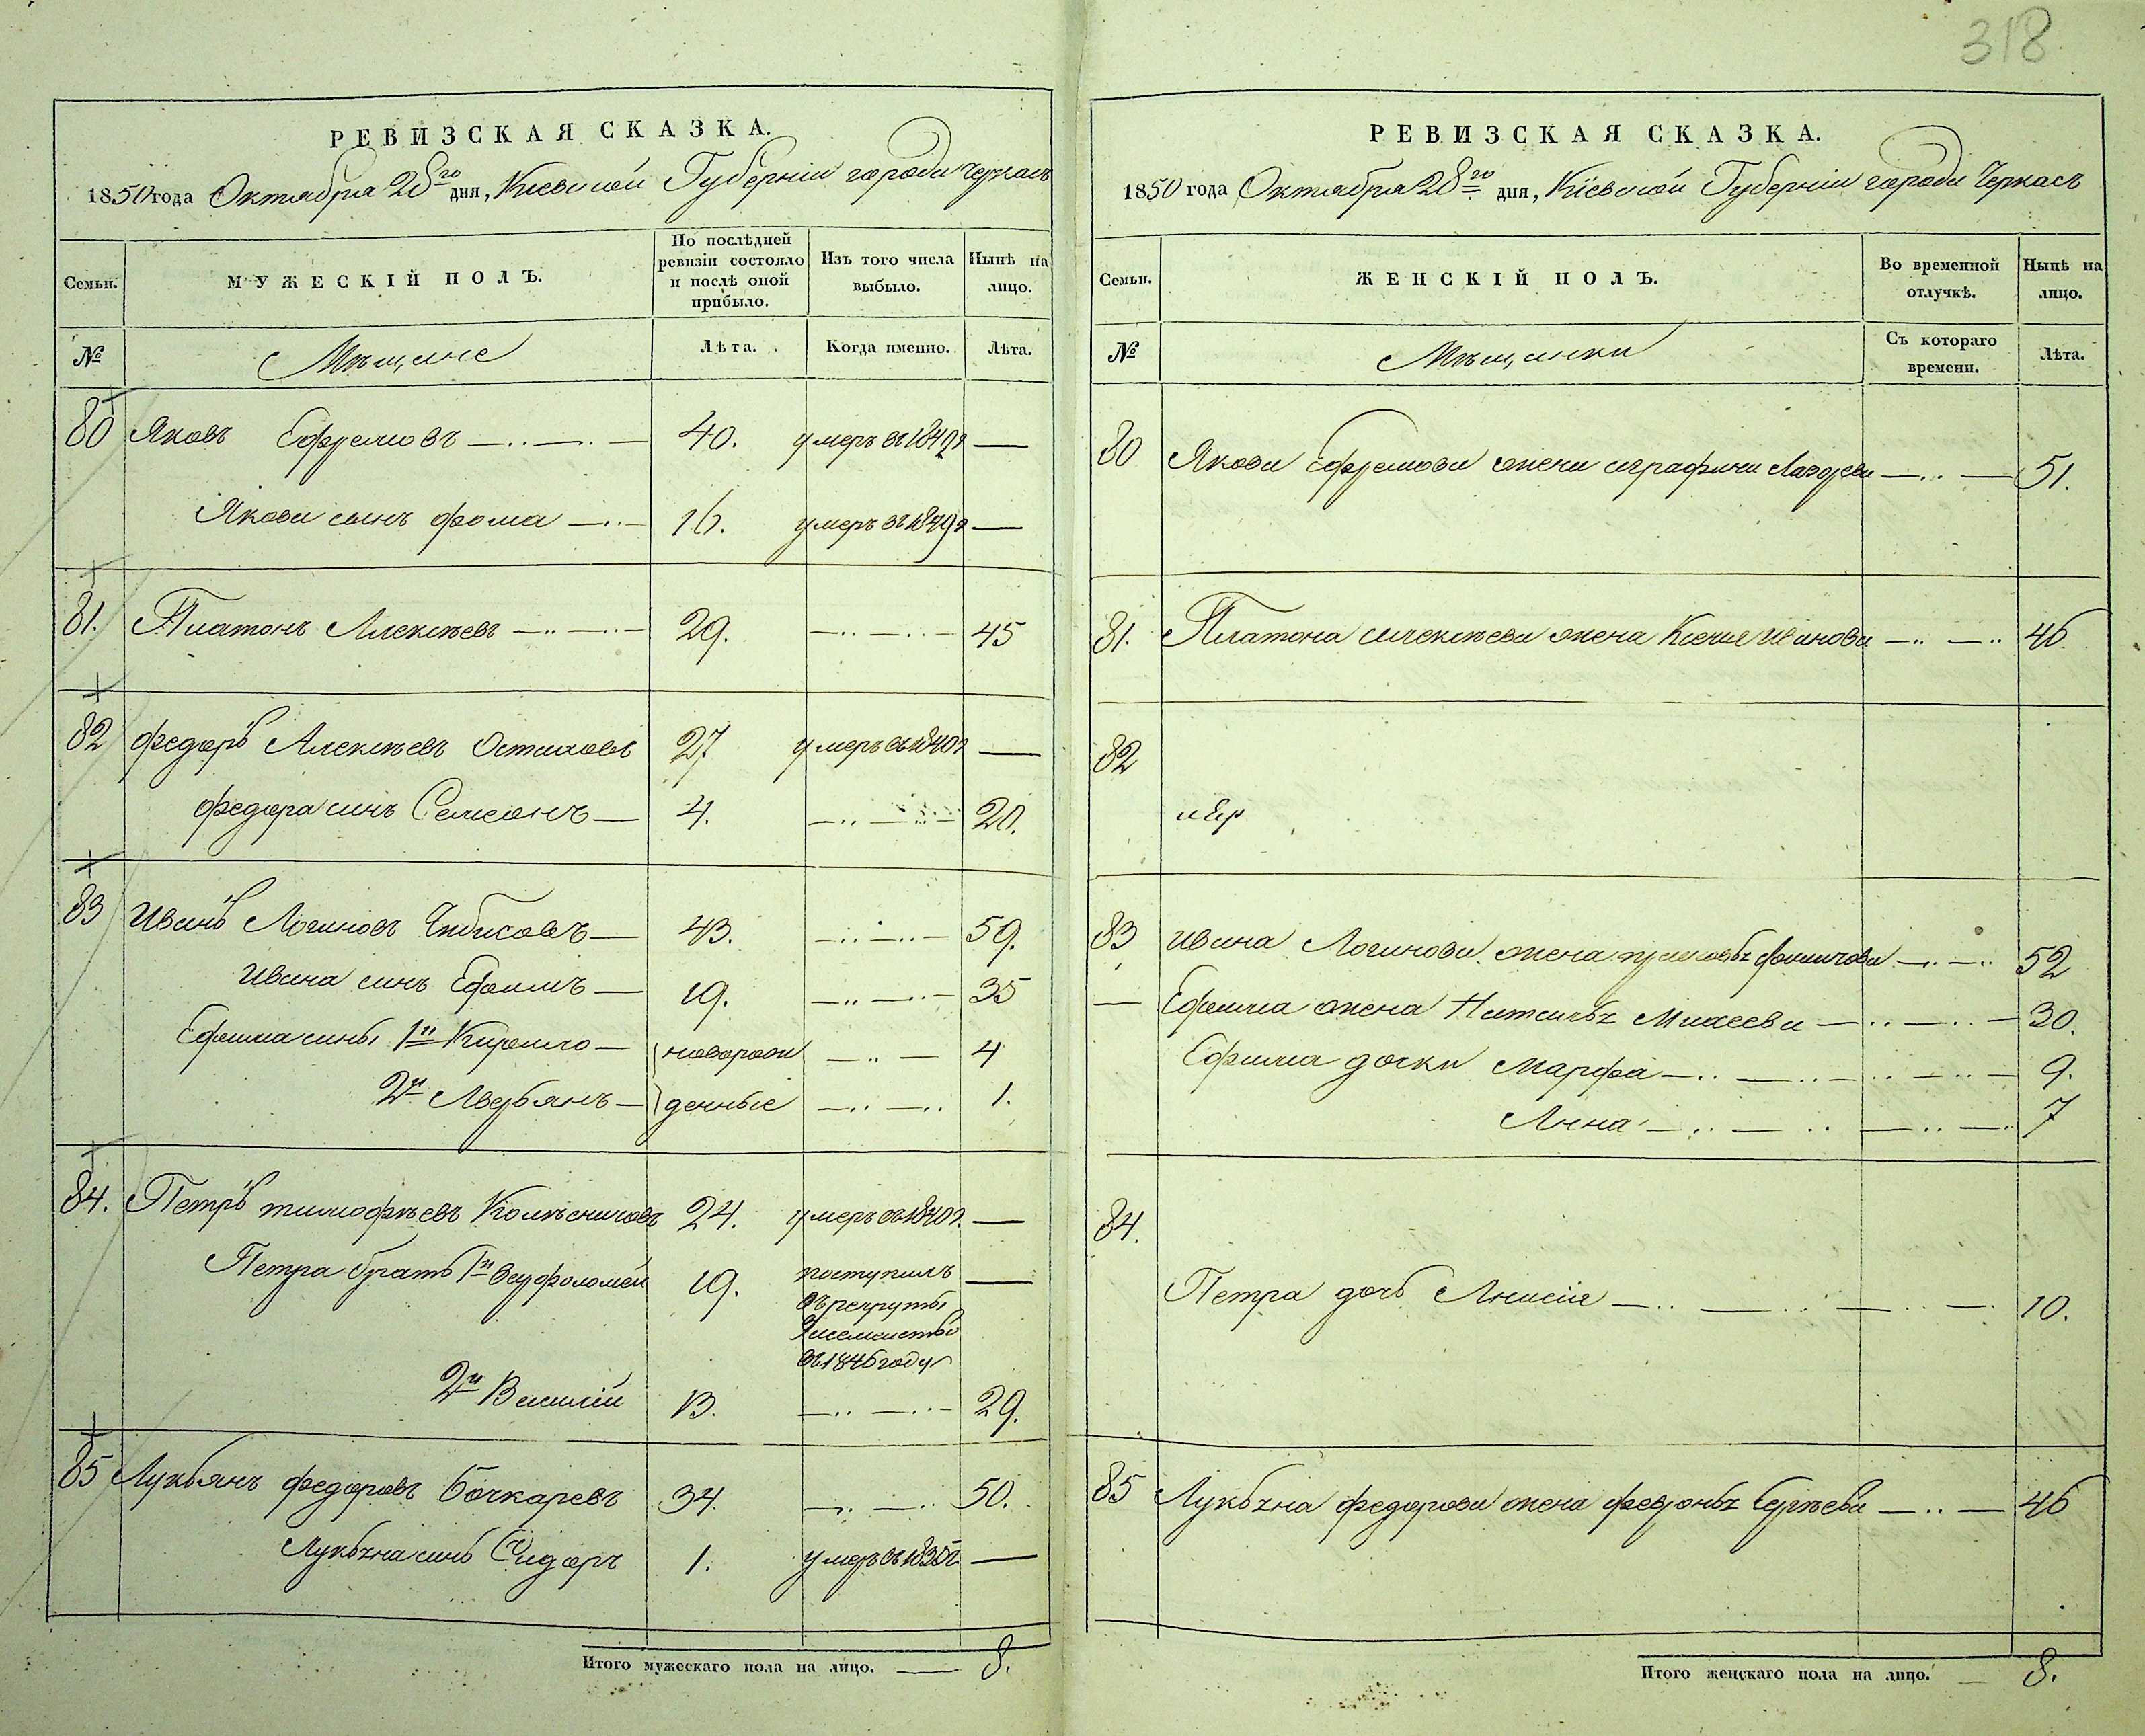 318
РЕВИЗСКАЯ СКАЗКА.
1850 года Октября 28го дня, Кіевской Губерніи города Черкасъ
Семьи.
МУЖЕСКІЙ ПОЛЪ.
По послѣдней ревизіи состояло и послѣ оной прибыло.
Изъ того числа выбыло.
Нынѣ на лицо.
№
Мѣщане
Лѣта.
Когда именно.
Лѣта.
80 Яковъ Ефремовъ 40. умеръ въ 1849г —
Якова сынъ Фома 16. умеръ въ 1849г —
81. Платонъ Алексѣевъ 29. 45
82 Федоръ Алексѣевъ 27 умеръ въ 1840г —
Федора синъ Семенъ 4. 20.
83 Иванъ Логиновъ Чибисовъ 43. 59.
Ивана синъ Ефимъ 19. 35
Ефима сины 1й новорож 4
2й денные 1.
84. Петръ тимофѣевъ Колѣсниковъ 24. умеръ въ 1840г. —
Петра братъ 1й Варфоломей 19. поступилъ —
въ рекруты
въ 1846 году
2й Василій 13. 29.
85 Лукьянъ Федоровъ Бочкаревъ 34. 50.
Лукьяна синъ Сидоръ 1. умеръ въ —
Итого мужескаго пола на лицо. — 8.
РЕВИЗСКАЯ СКАЗКА.
1850 года Октября 28го дня, Кіевской Губерніи города Черкасъ
Семьи.
ЖЕНСКІЙ ПОЛЪ.
Во временной отлучкѣ.
Нынѣ на лицо.
№
Мѣщанки
Съ котораго времени.
Лѣта.
80 Якова Ефремова жена 51.
81. Платона Алексѣева жена Ксенія Иванова 46.
82
83 Ивана Логинова жена 52
— Ефима жена Наталья Михеева 30.
Ефима дочки Марфа 9.
Анна 7
84.
Петра дочь Анисія 10.
85 Лукьяна Федорова жена Сергѣева 46
Итого женскаго пола на лицо. — 8.